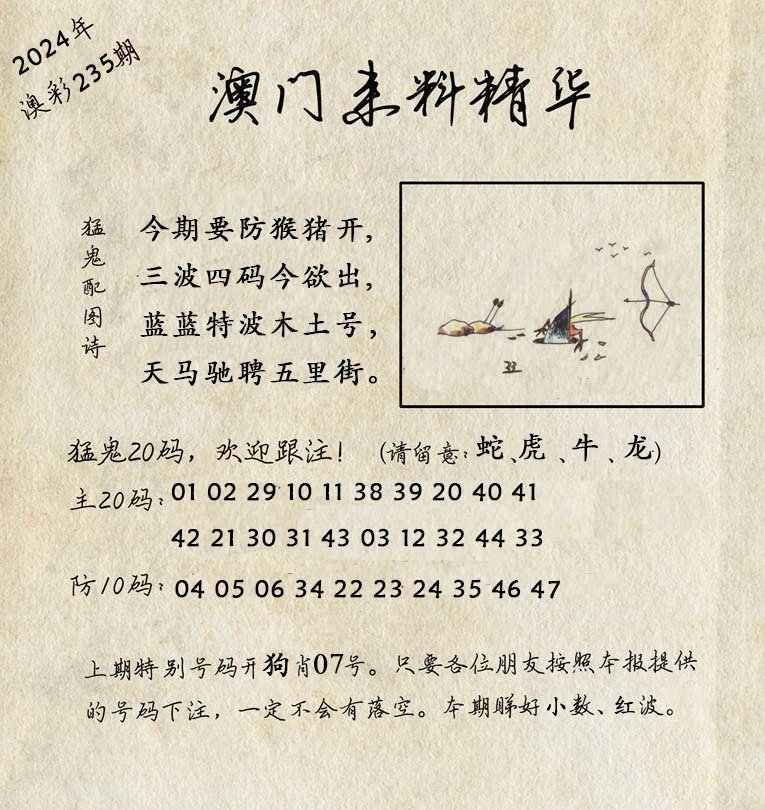 2024年
澳彩235期
澳门来料精华
猛鬼配图诗
今期要防猴猪开,
三波四码今欲出,
蓝蓝特波木土号,
天马驰聘五里街。
猛鬼20码，欢迎跟注！（请留意：蛇、虎、牛、龙）
主20码：01 02 29 10 11 38 39 20 40 41
42 21 30 31 43 03 12 32 44 33
防10码：04 05 06 34 22 23 24 35 46 47
上期特别号码开狗肖07号。只要各位朋友按照本报提供
的号码下注，一定不会有落空。本期睇好小数、红波。